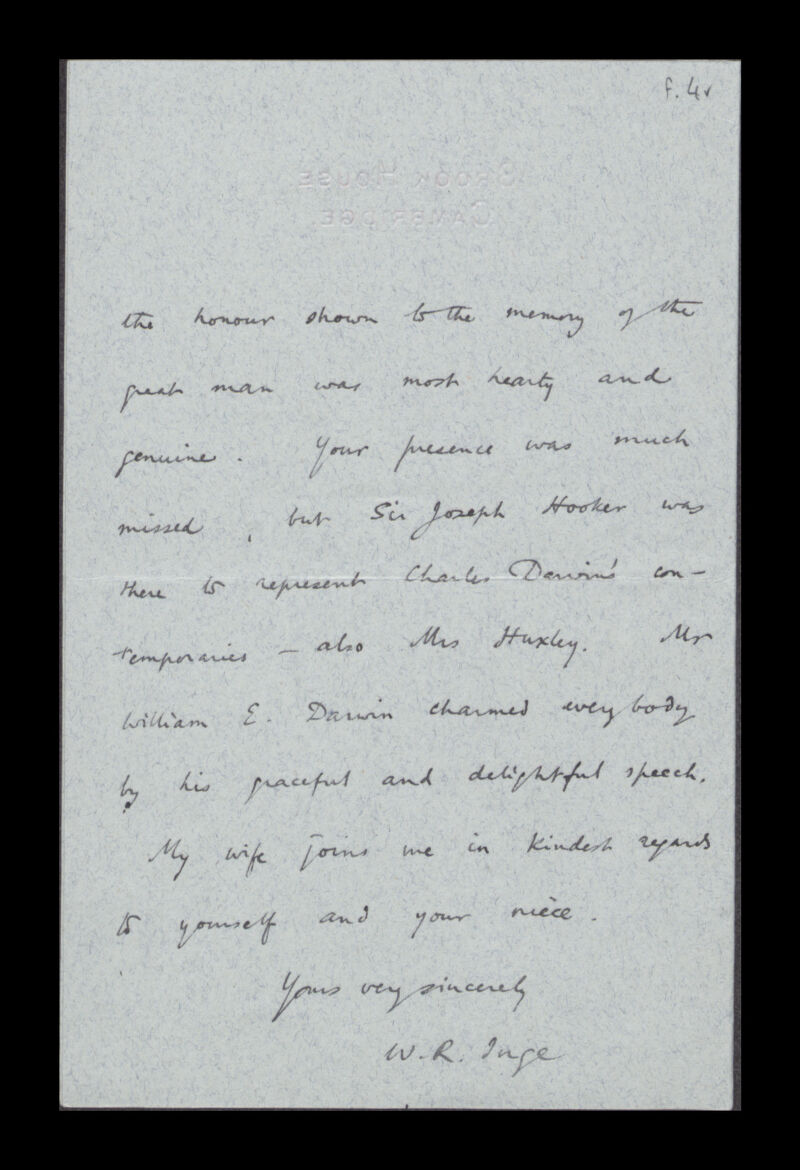 f. 4v
BROOK HOUSE
CAMBRIDGE
the honour shown to the memory of the
great man was most hearty and
genuine. Your presence was much
missed, but Sir Joseph Hooker was
there to represent Charles Darwin's con-
temporaries - also Mrs Huxley. Mr
William E. Darwin charmed everybody
by his graceful and delightful speech.
My wife joins me in kindest regards
to yourself and your nièce.
Yours very sincerely
W. R. Inge